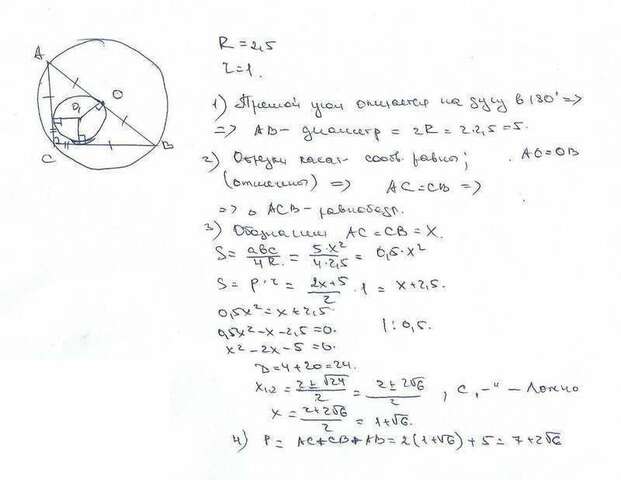 A
O
O₁
C
B
R = 2,5
r = 1.
1) Прямой угол опирается на дугу в 180° =>
=> AB - диаметр = 2R = 2·2,5 = 5.
2) Отрезки касат. соотв. равны; AO = OB
(отмечены) => AC = CB =>
=> △ ACB - равнобедр.
3) Обозначим AC = CB = X.
S = abc/4R = 5·x²/4·2,5 = 0,5·x²
S = p·r = (2x+5)/2 · 1 = x+2,5.
0,5x² = x+2,5
0,5x² - x - 2,5 = 0. |:0,5.
x² - 2x - 5 = 0.
D = 4 + 20 = 24.
x₁,₂ = (2±√24)/2 = (2±2√6)/2, с „-“ - ложно
x = (2+2√6)/2 = 1+√6.
4) P = AC+CB+AB = 2(1+√6)+5 = 7+2√6